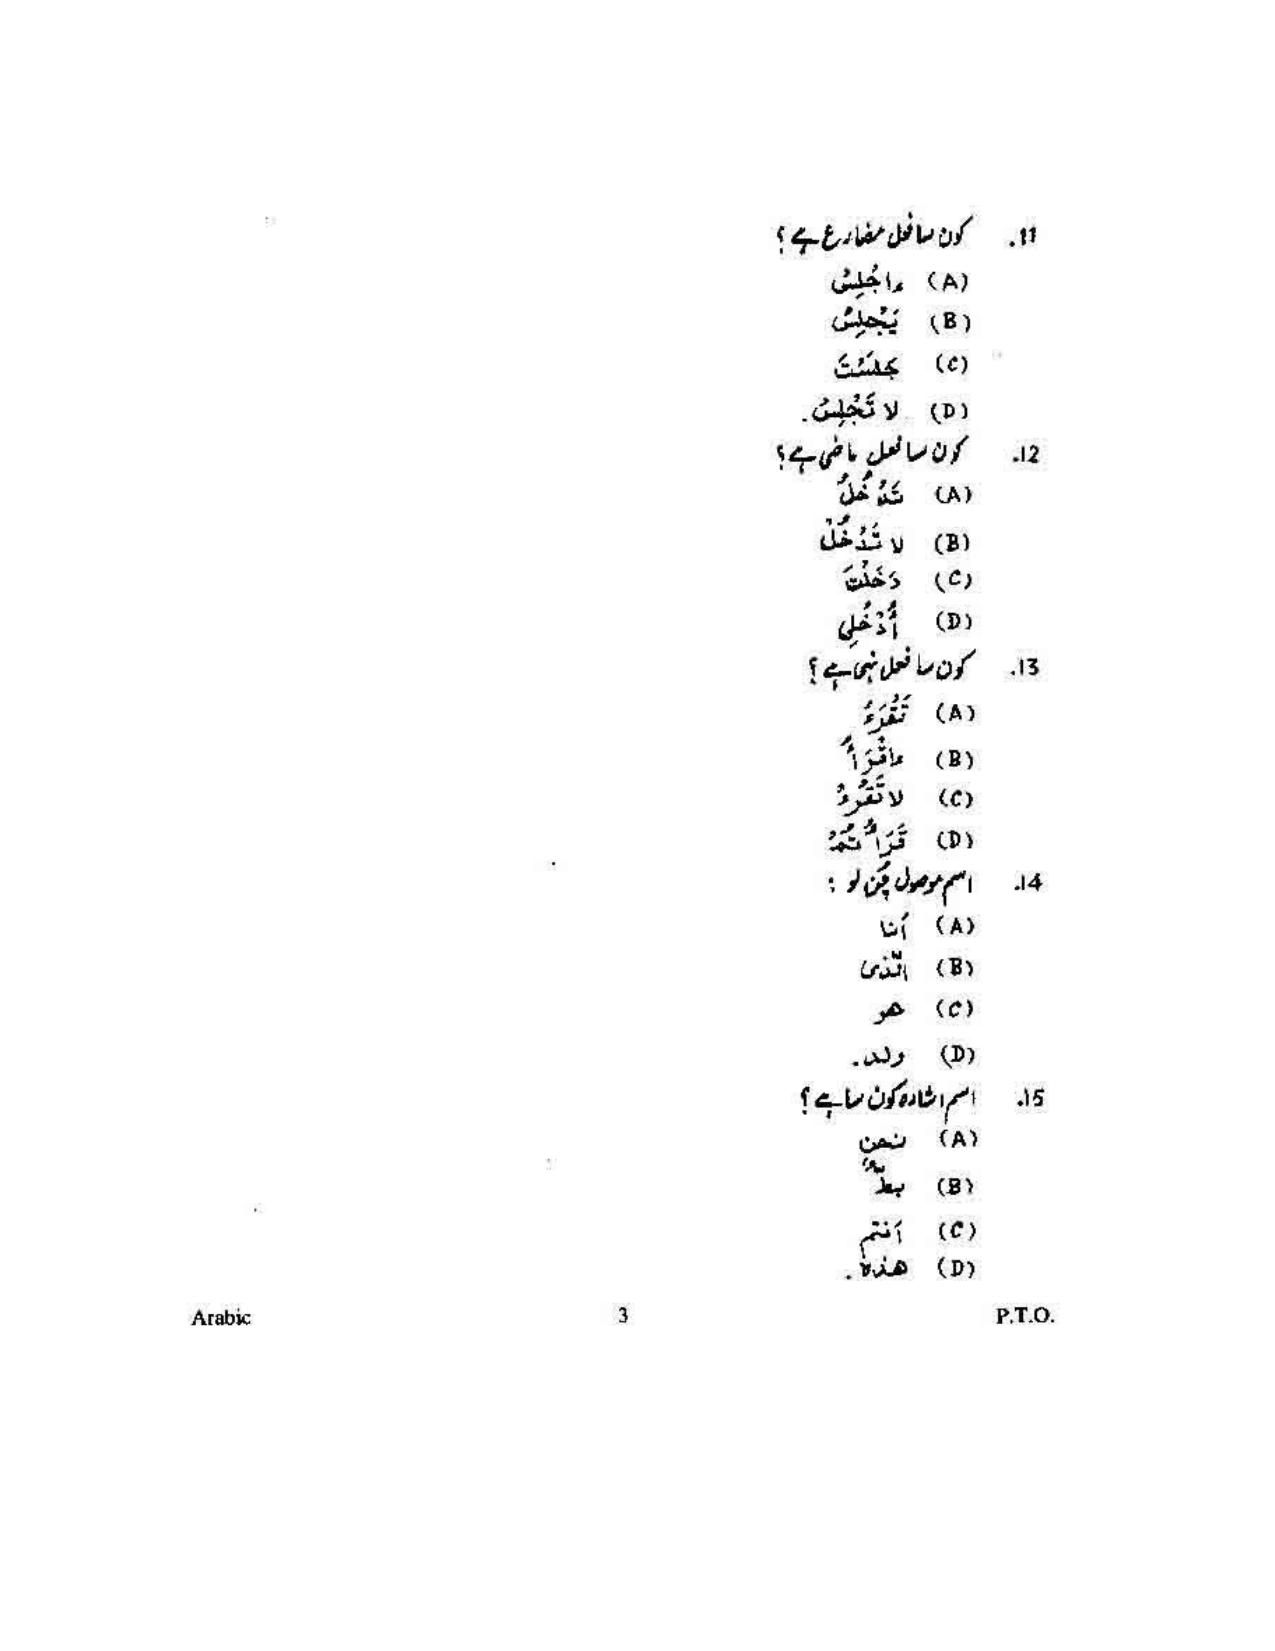 11. کون سا فعل مضارع ہے ؟
(A) ءاجْلِسْ
(B) يَجْلِسُ
(C) جلَسْتَ
(D) لا تَجْلِسْ.
12. کون سا فعل ماضی ہے ؟
(A) تَدْخُلُ
(B) لا تَدْخُلْ
(C) دَخَلْتَ
(D) أُدْخُلِی
13. کون سا فعل نہی ہے ؟
(A) تَقْرَءُ
(B) ءاقْرَأْ
(C) لا تَقْرَءْ
(D) قَرَأْتُمْ
14. اسم موصول چُن لو :
(A) أنا
(B) الّذی
(C) هو
(D) ولد.
15. اسم اشارہ کون سا ہے ؟
(A) نحن
(B) بطّةٌ
(C) أنتم
(D) هذه.
Arabic 3 P.T.O.